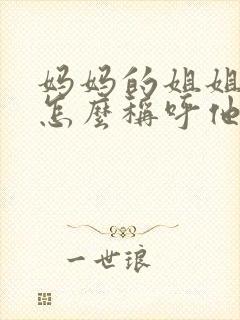 妈妈的姐姐
怎麼稱呼他
一世琅